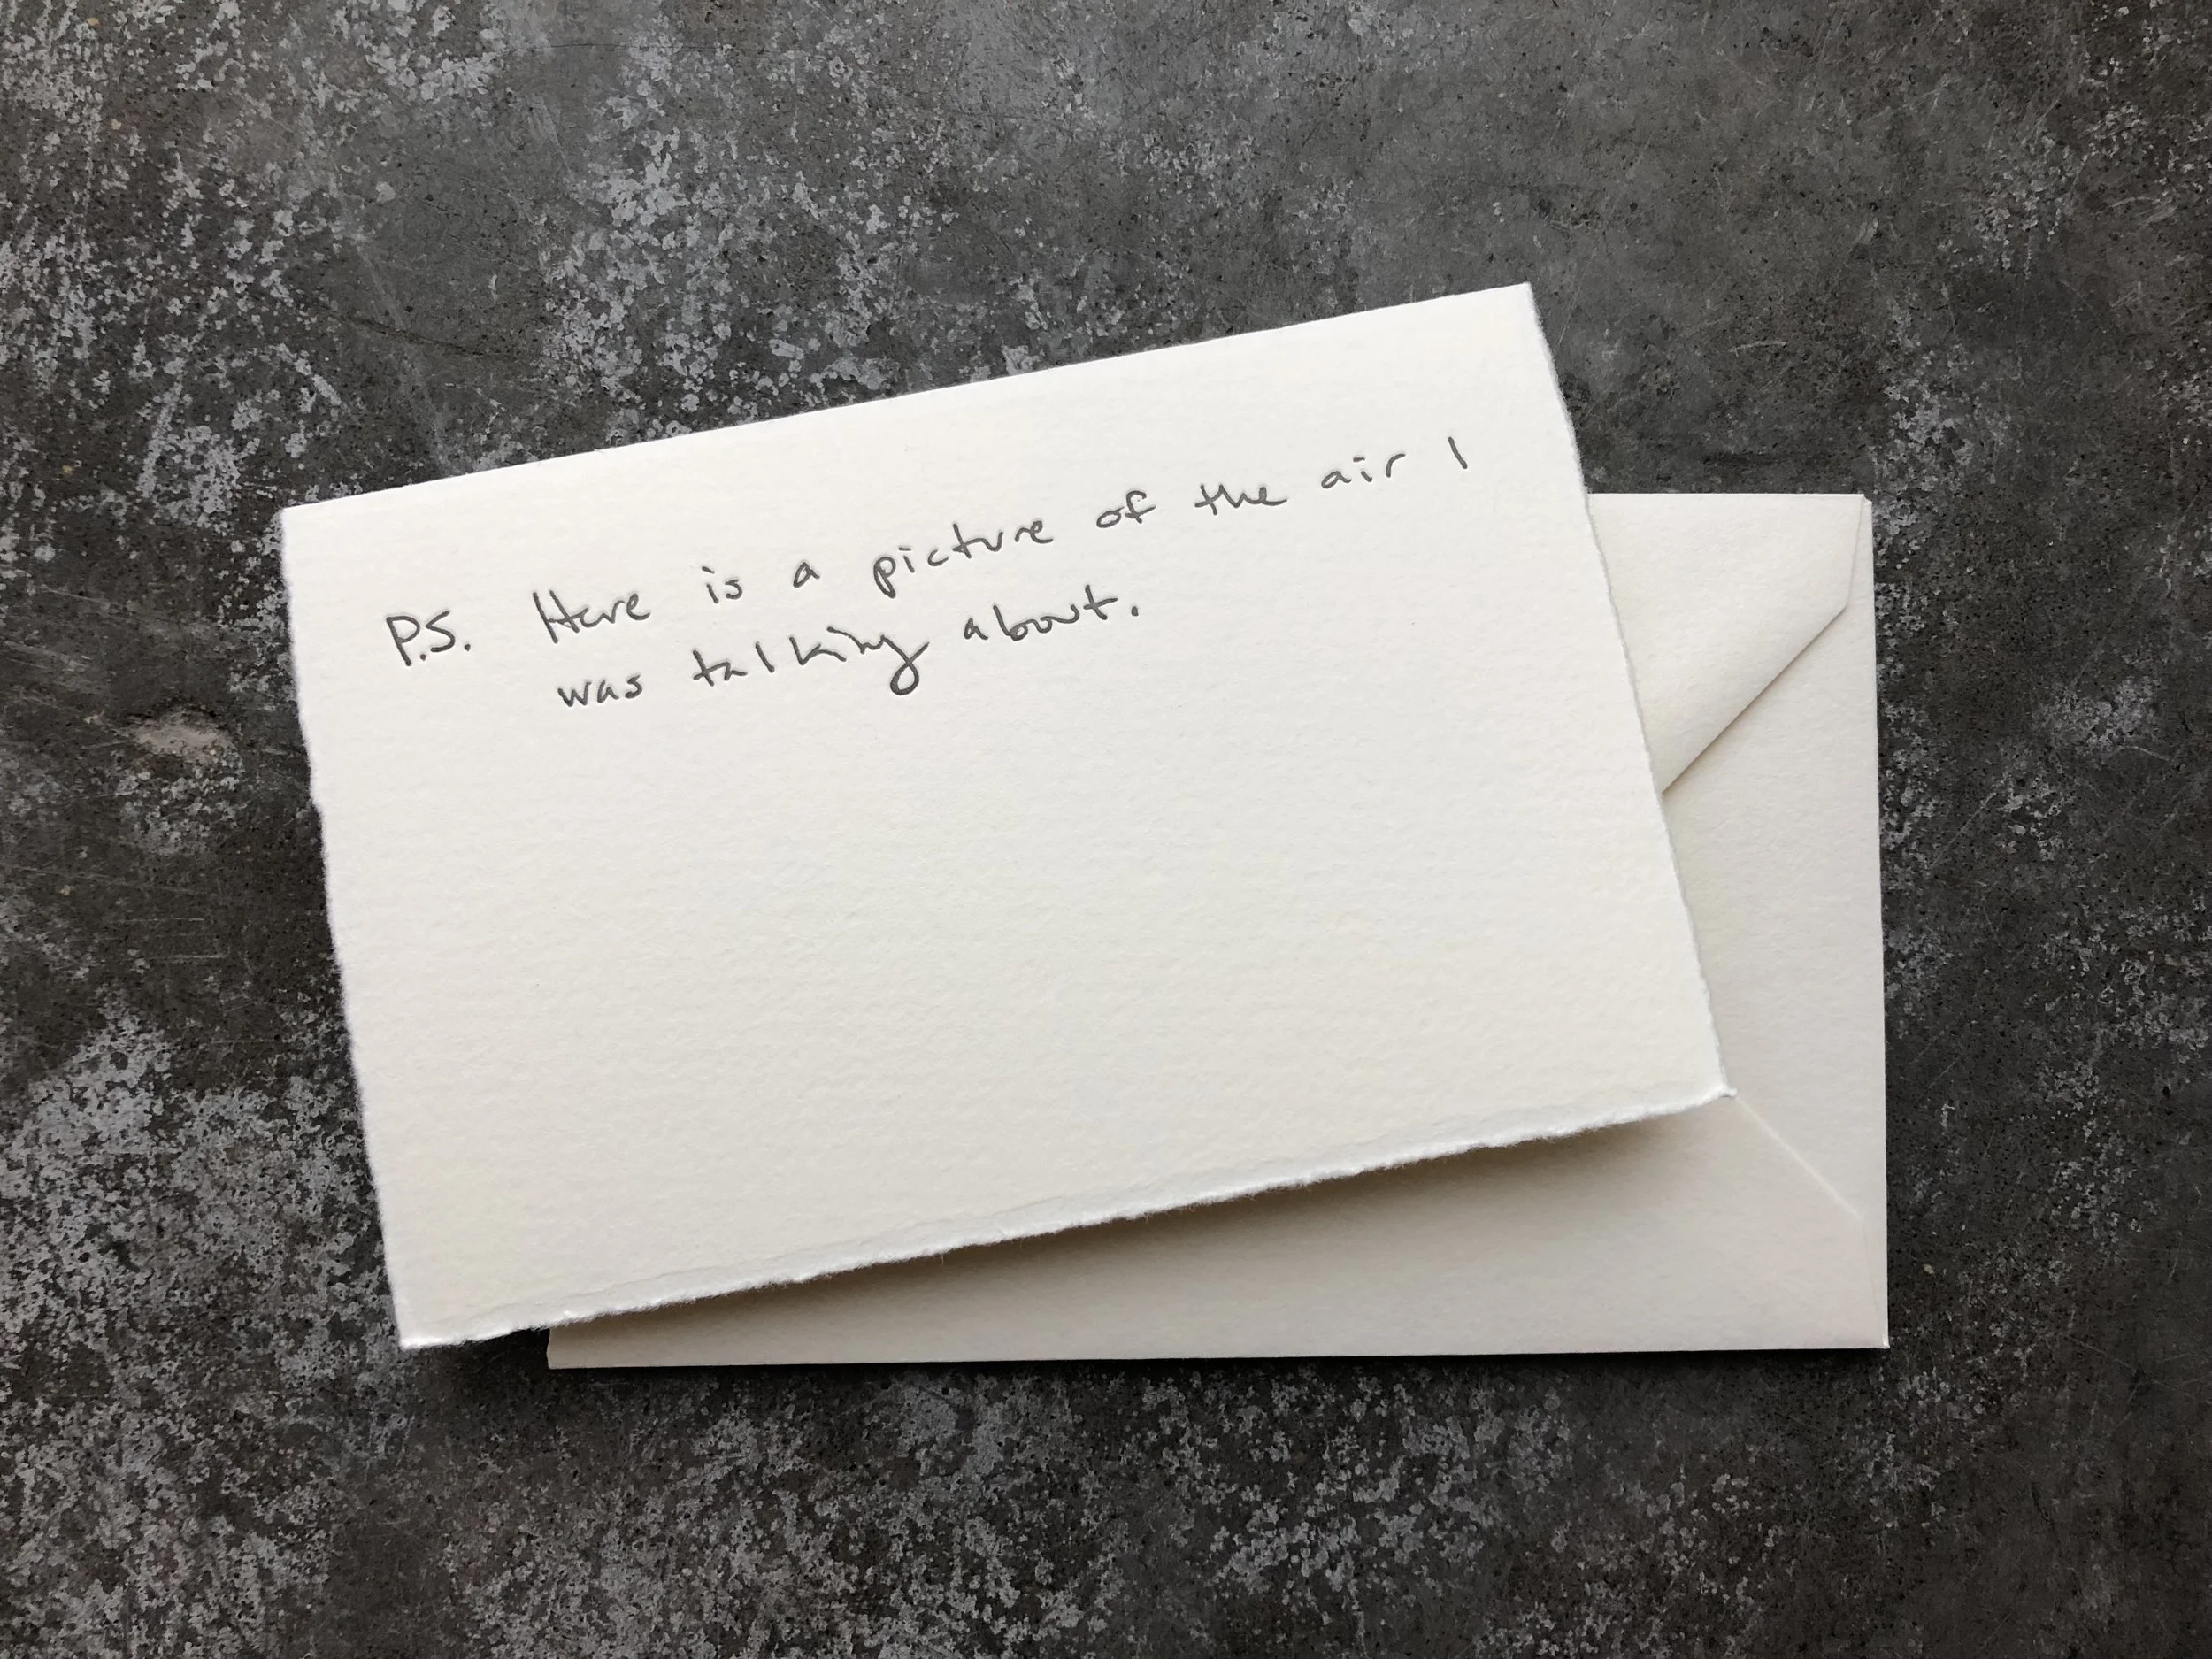 P.S. Here is a picture of the air I
was talking about.